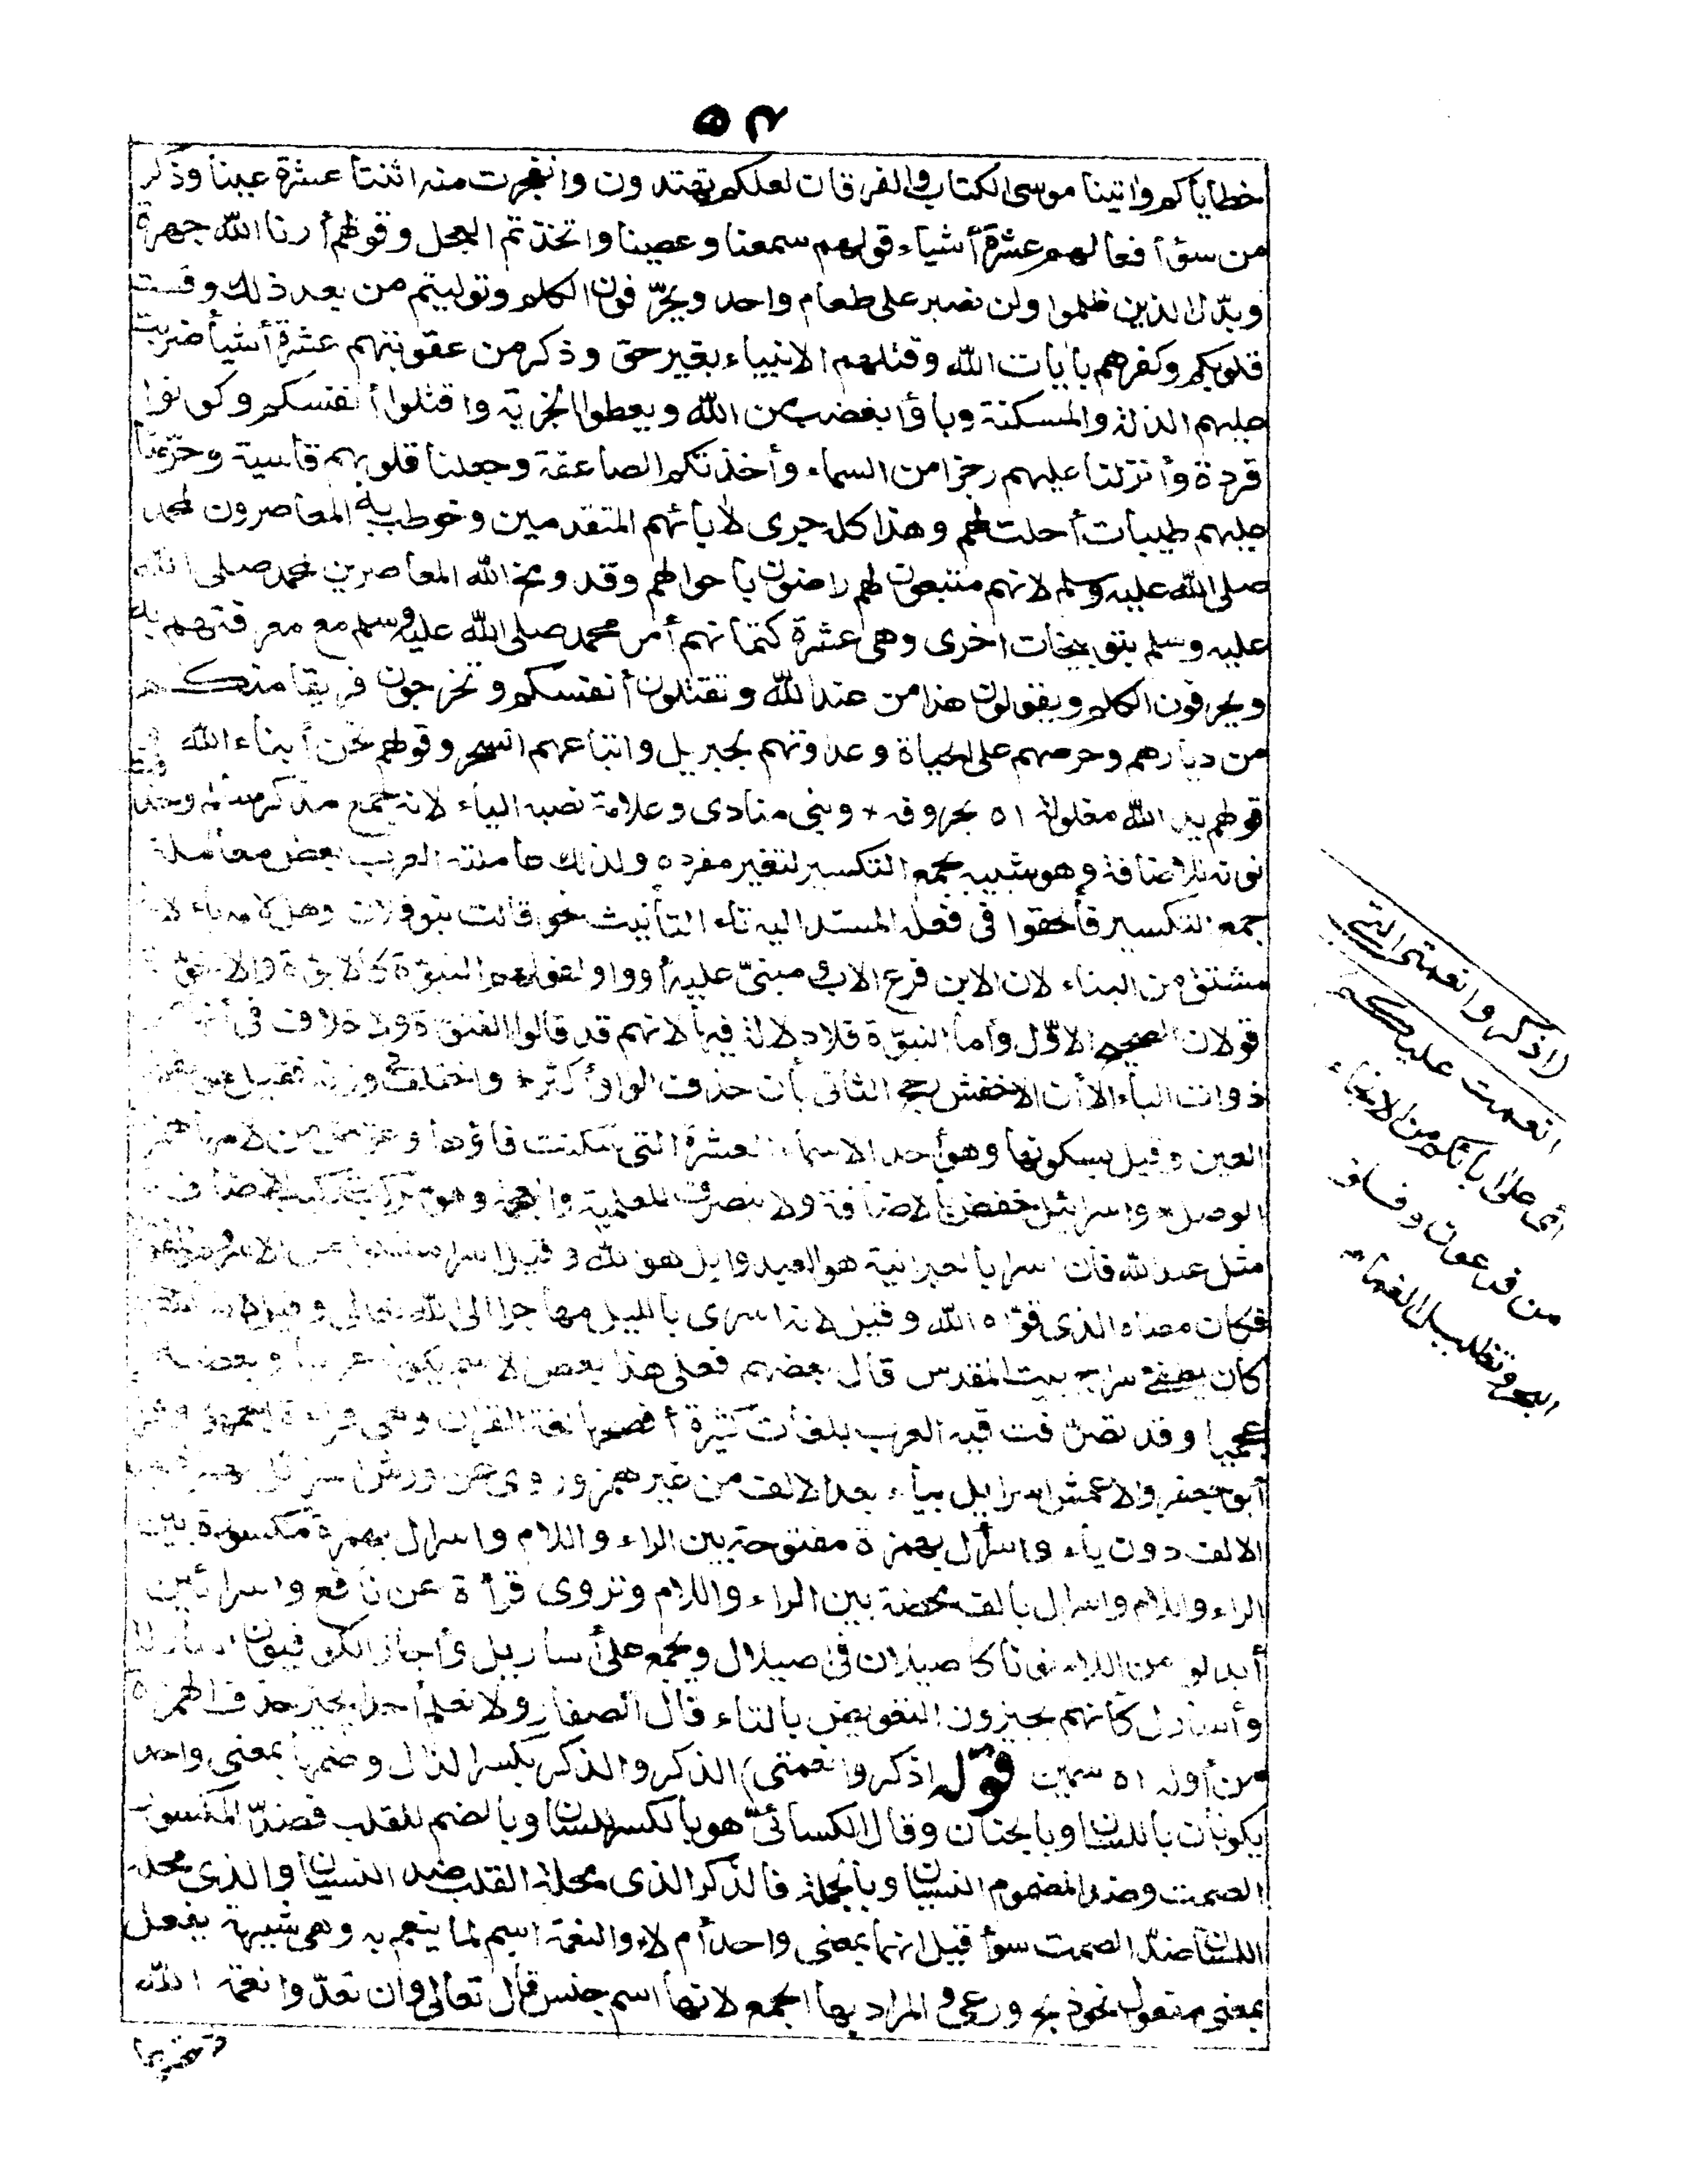 ٥٣
خطاياكم واتينا موسى الكتاب والفرقان لعلكم تهتدون وانفجرت منه اثنتا عشرة عينا وذكر
من سوٴ أفعالهم عشرة أشياء قولهم سمعنا وعصينا واتخذتم العجل وقولهم أرنا الله جهرة
وبدّل الذين ظلموا ولن نصبر على طعام واحد ويحرّفون الكلم وتوليتم من بعد ذلك وقست
قلوبكم وكفرهم بأيات الله وقتلهم الانبياء بغير حق وذكر من عقوبتهم عشرة أشيأ ضربت
عليهم الذلة والمسكنة وباؤا بغضب من الله ويعطوا الجزية واقتلوا أنفسكم وكونوا
قردة وأنزلنا عليهم رجزا من السماء وأخذتكم الصاعقة وجعلنا قلوبهم قاسية وحرّمنا
عليهم طيبات أحلت لهم وهذا كله جرى لأبائهم المتقدمين وخوطب به المعاصرون لمحمد
صلى الله عليه وسلم لانهم متبعون لهم راضون بأحوالهم وقد وبخ الله المعاصرين لمحمد صلى الله
عليه وسلم بتوبيخات اخرى وهى عشرة كتمانهم أمر محمد صلى الله عليه وسلم مع معرفتهم به
ويحرفون الكلم ويقولون هذا من عند الله وتقتلون أنفسكم وتخرجون فريقا منكم
من ديارهم وحرصهم على الحياة وعداوتهم لجبريل واتباعهم السحر وقولهم نحن أبناء الله
قولهم يد الله مغلولة اه بحروفه + وبنى منادى وعلامة نصبه الياء لانه جمع مذكر سالم وحذ
نونه للاضافة وهو شبيه بجمع التكسير لتغير مفرده ولذلك عاملته العرب بعض معاملة
جمع التكسير فألحقوا فى فعله المسند اليه تاء التأنيث نحو قالت بنو فلان وهل لامه ياء لانه
مشتق من البناء لان الابن فرع الاب ومبنىّ عليه أو واو لقولهم البنوّة كالابوّة والاخوّة
قولان الصحيح الاوّل وأما البنوّة فلا دلالة فيها لانهم قد قالوا الفتوّة ولا خلاف فى أنها من
ذوات الياء الا أن الاخفش رجح الثانى بأن حذف الواو أكثر واختلف فى وزنه فقيل هو بفتح
العين وقيل بسكونها وهو أحد الاسماء العشرة التى سكنت فاؤها وعوّض من لامها همزة
الوصل واسرائيل خفض بالاضافة ولا ينصرف للعلمية والعجمة وهو مركب تركيب الاضافة
مثل عبد الله فان اسرا بالعبرانية هو العبد وايل هو الله وقيل اسرا مشتق من الاسر وهو القوّة
فكان معناه الذى قوّاه الله وقيل لانه اسرى بالليل مهاجرا الى الله تعالى وقيل لانه
كان يطفئ سراج بيت المقدس قال بعضهم فعلى هذا بعض الاسم يكون عربيا وبعضه
عجميا وقد تصرّفت فيه العرب بلغات كثيرة أفصحها لغة القرآن وهى قراءة الجمهور وقرأ
أبو جعفر والاعمش اسرايل بياء بعد الالف من غير همز وروى عن ورش اسرائل بهمزة بعد
الالف دون ياء واسرأل بهمزة مفتوحة بين الراء واللام واسرئل بهمزة مكسورة بين
الراء واللام واسرال بالف محضة بين الراء واللام وتروى قرأة عن نافع واسرائين
أبدلوا من اللام نونا كاصيلان فى اصيلال ويجمع على أساريل وأجاز الكوفيون أسارلة
وأسارل كأنهم يجيزون التعويض بالتاء قال الصفار ولا نعلم أحدا يجيز حذف الهمزة
من أوله اه سمين قوله (اذكروا نعمتى) الذكر والذكر بكسر الذال وضمها بمعنى واحد
يكونان باللسان وبالجنان وقال الكسائىّ هو بالكسر للسان وبالضم للقلب فضدّ المكسور
الصمت وضد المضموم النسيان وبالجملة فالذكر الذى محله القلب ضد النسيان والذى محله
اللسان ضدّ الصمت سوأ قيل انهما بمعنى واحد أم لا والنعمة اسم لما ينعم به وهى شبيهة بفعل
بمعنى مفعول نحو ذبح ورعى والمراد بها الجمع لانها اسم جنس قال تعالى وان تعدّوا نعمة الله
(اذكروا نعمتى التى
انعمت عليكم
اى على ابائكم من الانجاء
من فرعون و
البحر وتظليل الغمام